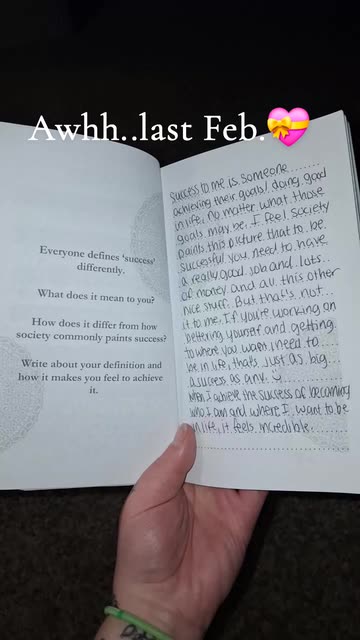 Awhh..last Feb.💝
Everyone defines 'success'
differently.
What does it mean to you?
How does it differ from how
society commonly paints success?
Write about your definition and
how it makes you feel to achieve
it.
Success to me is someone
achieving their goals/doing good
in life, no matter what those
goals may be. I feel society
paints this picture that to be
successful you need to have
a really good job and lots
of money and all this other
nice stuff. But that's not
it to me. If you're working on
bettering yourself and getting
to where you want/need to
be in life, that's just as big
a success as any. ☺
When I achieve the success of becoming
who I am and where I want to be
in life, it feels incredible.